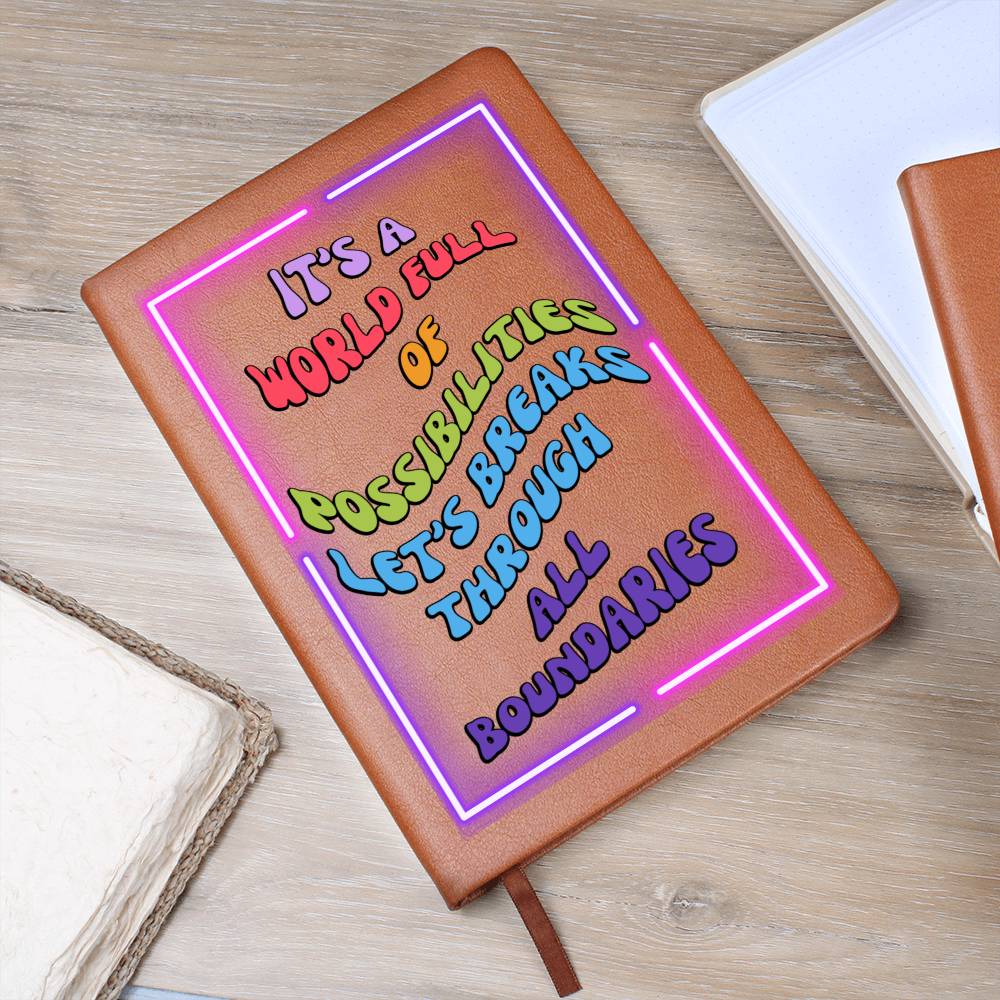 IT'S A
WORLD FULL
OF
POSSIBILITIES
LET'S BREAKS
THROUGH
ALL
BOUNDARIES